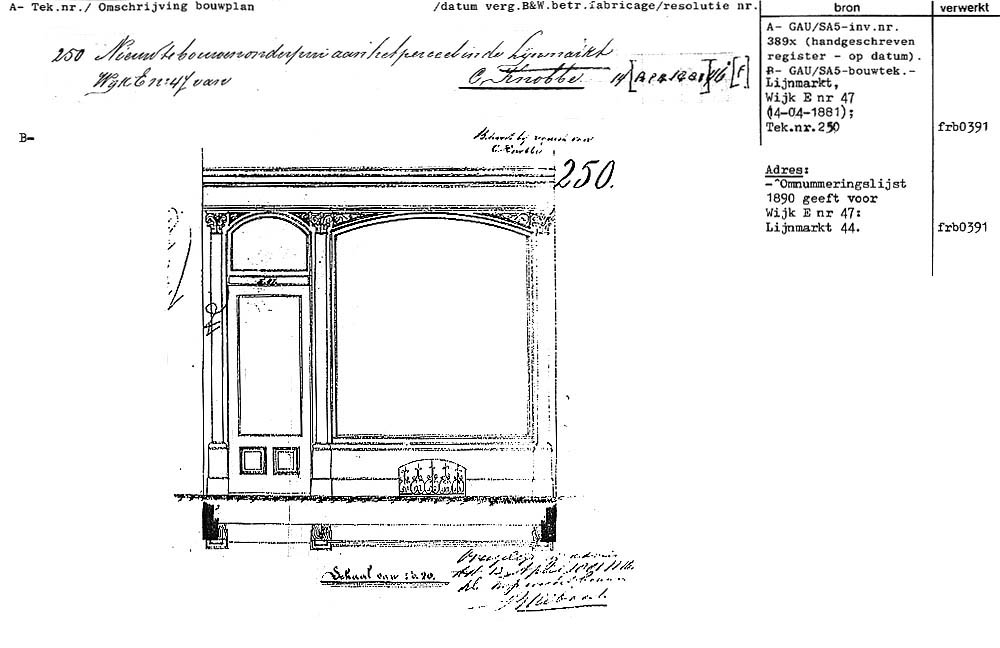 A- Tek.nr./ Omschrijving bouwplan
/datum verg.B&W.betr.fabricage/resolutie nr.
bron
verwerkt
250 Nieuw te bouwen onderpui aan het perceel in de Lijnmarkt
Wijk E no 47 van C. Knobbe 14 [APR 1881]
A- GAU/SA5-inv.nr.
389x (handgeschreven
register - op datum).
B- GAU/SA5-bouwtek.-
Lijnmarkt,
Wijk E nr 47
(14-04-1881);
Tek.nr.250
frb0391
B-
Behoort bij
C. Knobbe
250.
Adres:
-^Omnummeringslijst
1890 geeft voor
Wijk E nr 47:
Lijnmarkt 44.
frb0391
Schaal van
April 1881